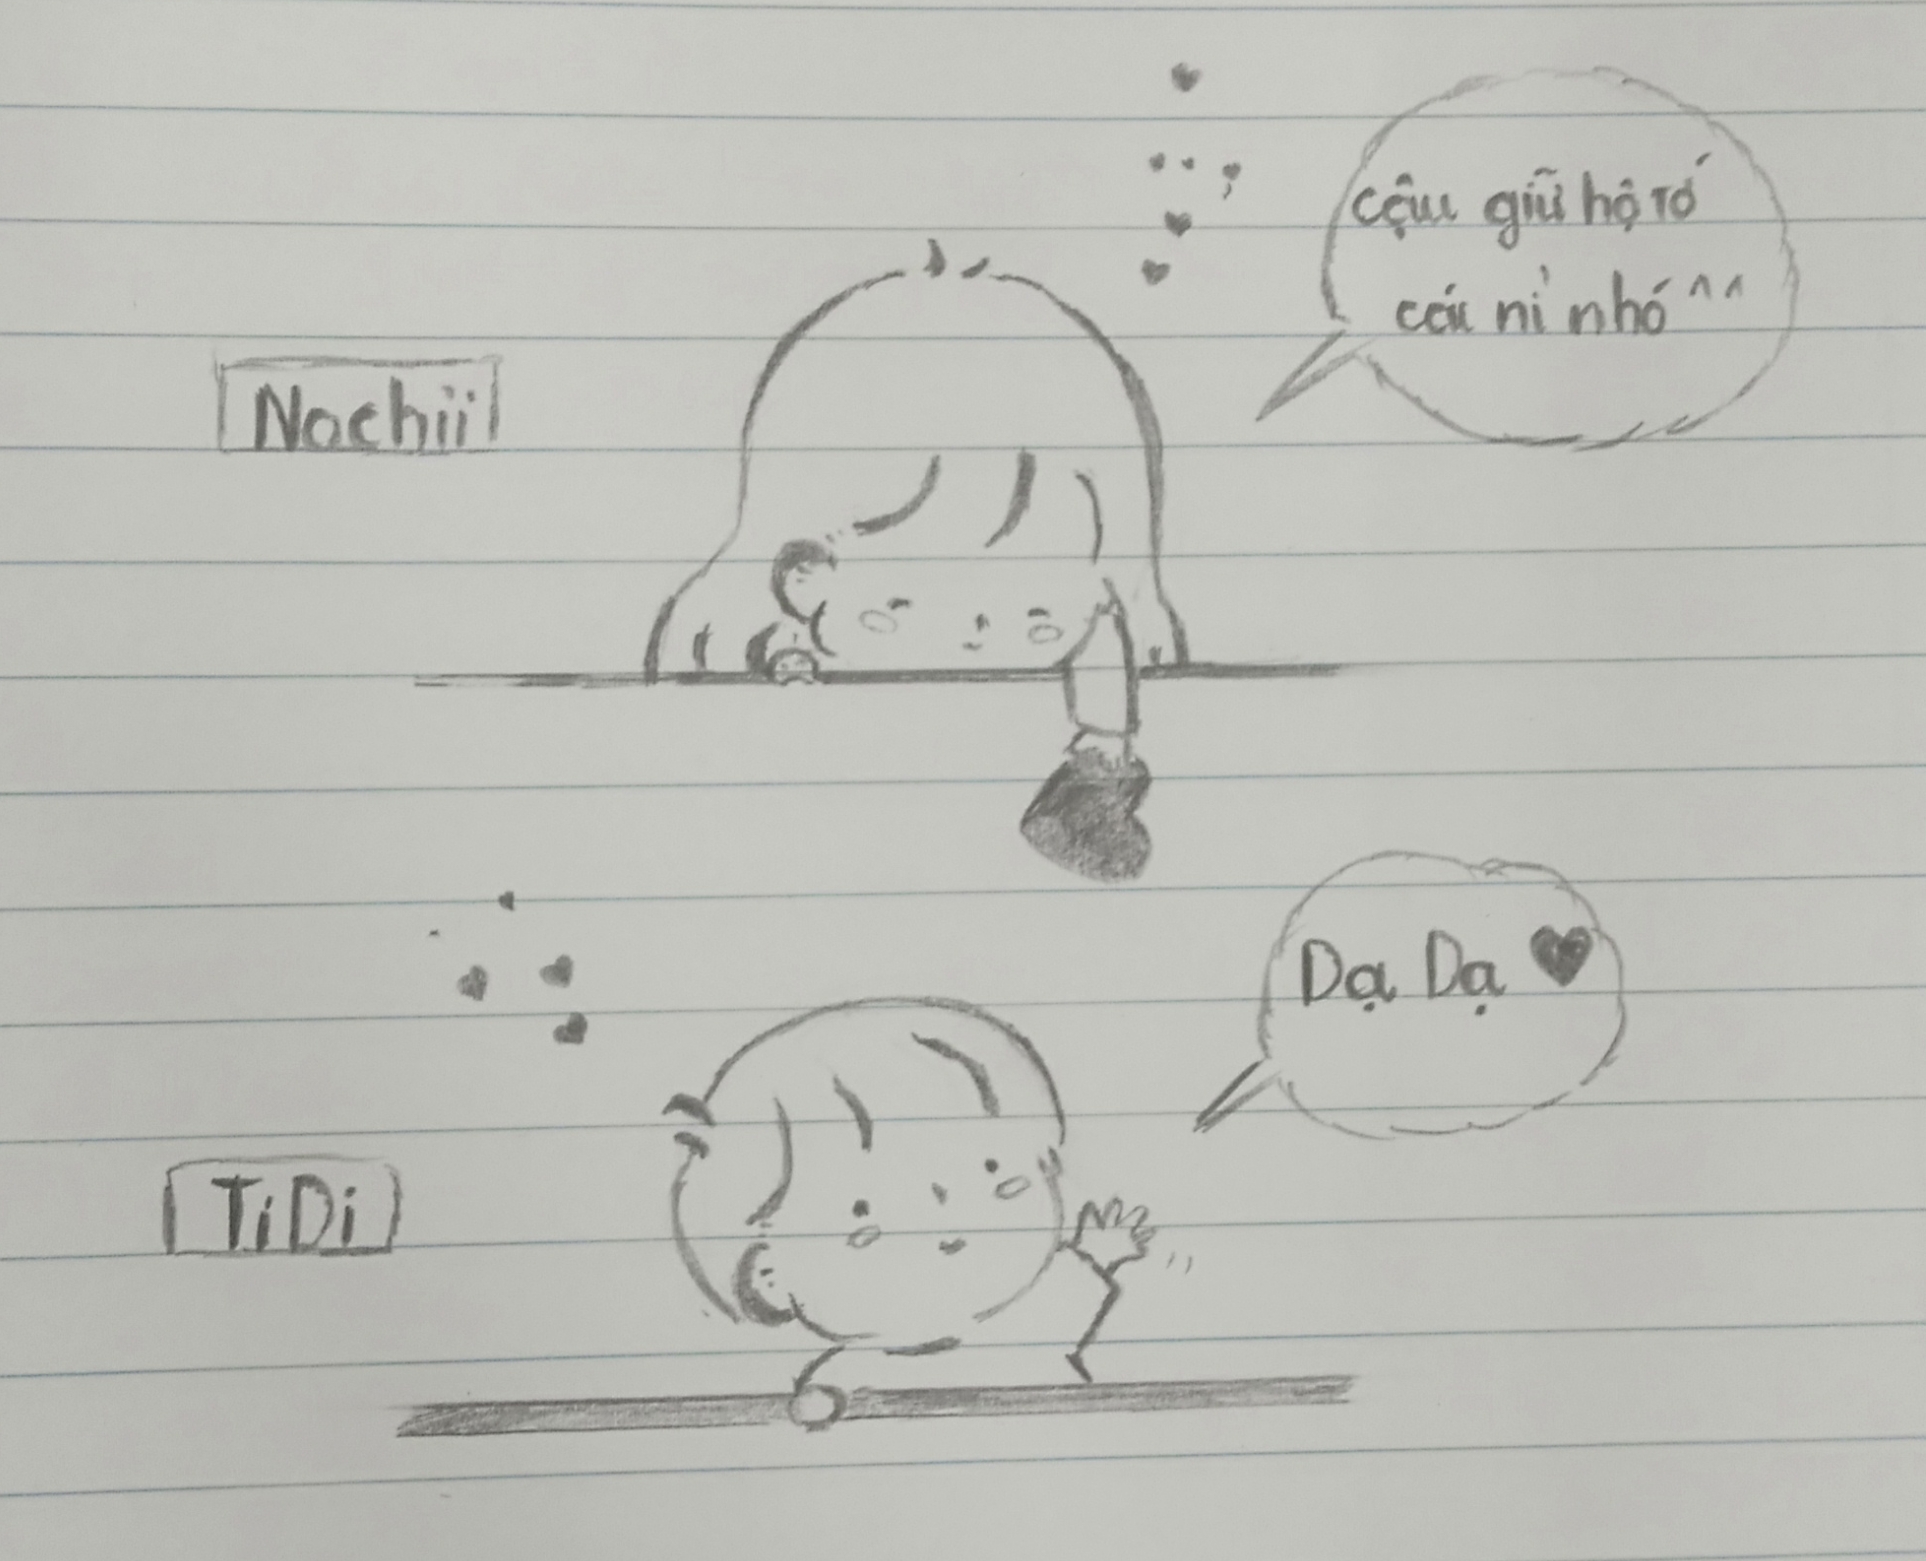 cậu giữ hộ tớ
cái nì nhó ^^
Nochii
Dạ Dạ ♥
TiDi